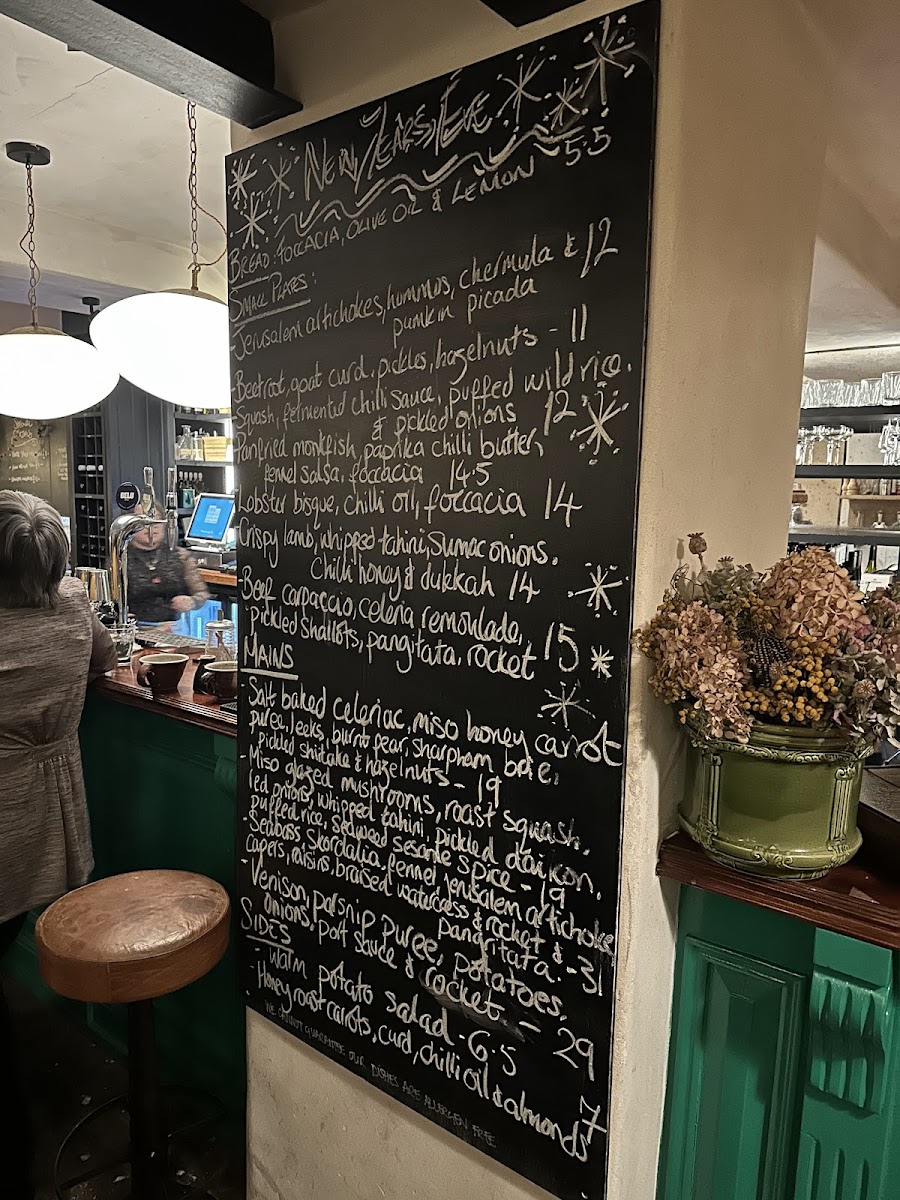 New Years Eve
Bread: Foccacia, Olive Oil & Lemon ~ 5.5
Small Plates:
- Jerusalem artichokes, hommus, chermula & 12
pumkin picada
- Beetroot, goat curd, pickles, hazelnuts - 11
Squash, fermented chilli sauce, puffed wild rice.
& pickled onions 12
Panfried monkfish, paprika chilli butter,
fennel salsa, foccacia 14.5
Lobster bisque, chilli oil, foccacia 14
- Crispy lamb, whipped tahini, Sumac onions.
Chilli honey & dukkah 14
- Beef carpaccio, celeria remoulade,
Pickled shallots, pangitata, rocket 15
Mains
- Salt baked celeriac, miso honey carrot
puree, leeks, burnt pear, sharpham brie,
pickled shiitake & hazelnuts - 19
- Miso glazed mushrooms, roast squash,
red onions, whipped tahini, pickled daicon,
puffed rice, seaweed sesame spice - 19
- Seabass, Skordalia, fennel, jerusalem artichoke
capers, raisins, braised watercress & rocket &
pangritata. - 31
- Venison, parsnip puree, potatoes,
onions, port sauce & rocket. - 29
Sides
- Warm potato salad - 6.5
- Honey roast carrots, curd, chilli oil & almonds 7
WE CANNOT GUARANTEE OUR DISHES ARE ALLERGEN FREE